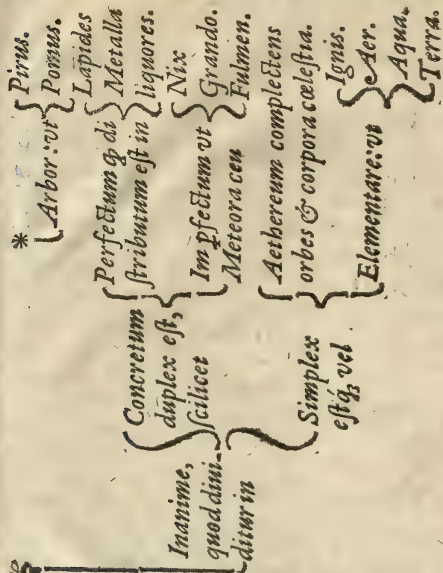 *
Arbor: vt
Pirus.
Pomus.
Inanime,
quod diui-
ditur in
Concretum
duplex eſt,
ſcilicet
Perfectum ꝙ di
ſtributum eſt in
Lapides
Metalla
liquores.
Imꝑfectum vt
Meteora ceu
Nix
Grando.
Fulmen.
Simplex
eſtq́ꝫ vel
Aethereum complectens
orbes & corpora cœleſtia.
Elementare: vt
Ignis.
Aer.
Aqua.
Terra.